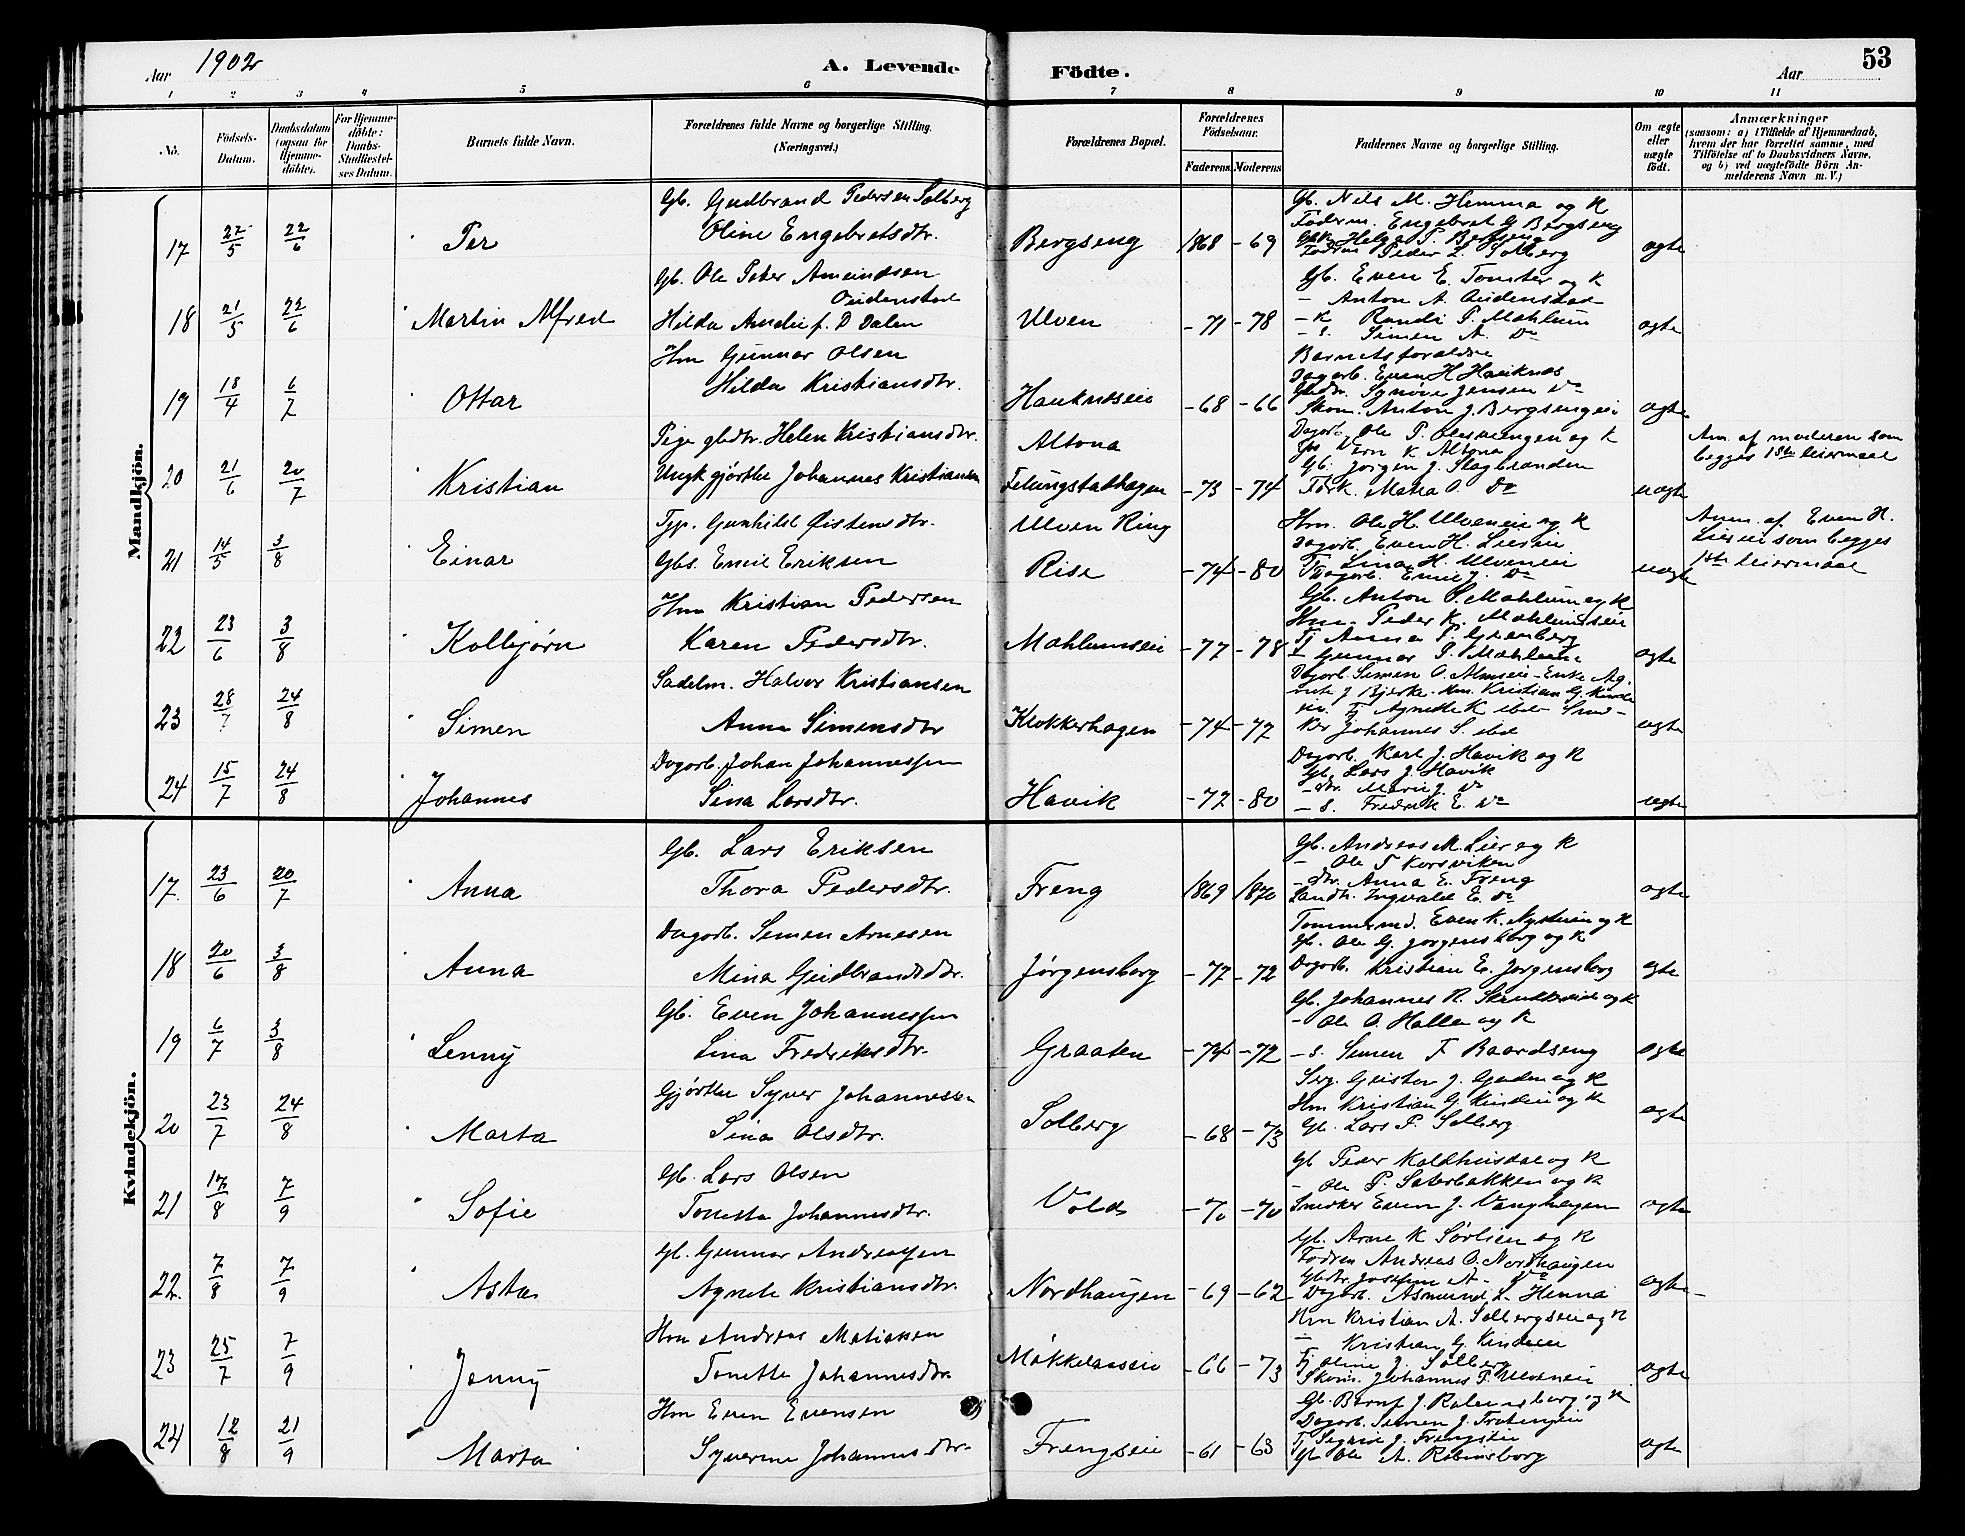 Aar 1902
A. Levende Födte.
Aar
53
1 2 3 4 5 6 7 8 9 10 11
No.
Födsels-Datum.
Daabsdatum (ogsaa for Hjemmedöbte).
For Hjemmedöbte: Daabs-Stadfæstelses Datum.
Barnets fulde Navn.
Forældrenes fulde Navne og borgerlige Stilling. (Næringsvei.)
Forældrenes Bopæl.
Forældrenes Födselsaar.
Faderens. Moderens
Faddernes Navne og borgerlige Stilling.
Om ægte eller uægte födt.
Anmærkninger (saasom: a) i Tilfælde af Hjemmedaab, hvem der har forrettet samme, med Tilföielse af to Daabsvidners Navne, og b) ved uægtefödte Börn Anmelderens Navn m. V.)
Mandkjön.
17 22/5 22/6 Per
Gb. Gudbrand Pedersen Solberg
Oline Engebretsdtr.
Bergseng 1868 -69
Gb. Nels M. Hemma og K
Föderm. Engebret G Bergseng
Peder L. Solberg
ægte
18 21/5 22/6 Martin Alfred
Gb. Ole Peter Amundsen
Oudenstad
Hilda Amalie f. D Dalen
Ulven -71 -78
Gb. Even E. Tomter og K
- Anton A. Oudenstad
- K Randi P. Mahlum
- s. Simen A. Do
ægte
19 18/4 6/7 Ottar
Hm Gunnar Olsen
Hilda Kristiansdtr.
Hauknæseie -68 -66
Barnets forældre
Dagarb. Even H Hauknæs
Gbdtr. Synöve Jensen Do
Skom. Anton J. Bergsengeie
ægte
20 21/6 20/7 Kristian
Pige gbdtr. Helen Kristiansdtr.
Ungk gjörtler Johannes Kristiansen
Altona
-73 -74
Dagarb. Ole P. og K
K Altona
Gb. Jörgen J. Slagbranden
Maria O. Do
uægte
Anm. af moderen som
begges 1ste leiermaal
21 14/5 3/8 Einar
Tyip. Gunhild Öistensdtr.
Gbs. Emil Eriksen
Ulven Ring
Rise -74 -80
Hm. Ole H. Ulveneie og K
Dagarb. Even H. Liereie
Lina H. Ulveneie
Dagarb. Emil J. Do
uægte
Anm. af Even H.
Liereie som begges
1ste leiermaal
22 23/6 3/8 Kolbjørn
Hm Kristian Pedersen
Karen Pedersdtr.
Mahlumseie -77 -78
Gb. Anton S. Mahlum og K
Hm. Peder K. Mahlumseie
Tj Anna P. Granberg
- Gunnar P. Mahlum
ægte
23 28/7 24/8 Simen
Sadelm. Halvor Kristiansen
Anna Simensdtr
Klokkerhagen -74 -77
Dagarb. Simen O. Almseie - Enke Ag-
nete J Bjerke - Hm. Kristian G. Kinde
eie. Tj Agnethe K ibd - Sned-
ker Johannes S. ibd
ægte
24 15/7 24/8 Johannes
Dagarb. Johan Johannessen
Sina Larsdtr.
Havik -72 -80
Dagarb. Karl J. Havik og K
Gb. Lars J. Havik
- dtr. Marie J. Do
- s. Fredrik E. Do
ægte
Kvindekjön.
17. 23/6 20/7 Anna
Gb. Lars Eriksen
Thora Pedersdtr.
Freng 1869 1870
Gb. Andreas M. Lier og K
- Ole P Korsviken
- dtr. Anna E. Freng
Landh. Ingvald E. Do
ægte
18 20/6 3/8 Anna
Dagarb. Simen Arnesen
Mina Gudbrandsdtr.
Jørgensborg -77 -72
Tømmermd. Even K. Nystuen og K
Gb. Ole G. Jørgensborg og K
Dagarb. Kristian E. Jørgensborg
ægte
19 6/7 3/8 Lenny
Gb. Even Johannessen
Lina Fredriksdtr.
Graaten -74 -72
Gb. Johannes R. og K
- Ole O. Halle og K
- s. Simen F Baardseng
ægte
20 23/7 24/8 Marta
Gjørtler Syver Johannessen
Sina Olsdtr.
Solberg -68 -73
Serg. J. og K
Hm Kristian G Kindeie og K
Gb. Lars P. Solberg
ægte
21 17/8 7/9 Sofie
Gb. Lars Olsen
Tonetta Johannesdtr.
Volds -70 -70
Gb Peder Koldhusdal og K
- Ole P. Sæterbakken og K
Snedker Even J. Vanghagen
ægte
22. 7/8 7/9 Asta
Gb. Gunnar Andreassen
Agnete Kristiansdtr.
Nordhaugen -69 -62
Gb. Arne K Sørlien og K
Föderm Andreas O. Nordhaugen
Gbdtr. Josefine A. Do
Dagarb. Asmund L. Henna
ægte
23 25/7 7/9 Jenny
Hm Andreas Matiassen
Tonette Johannesdtr.
Møkkelaseie -66 -73
Hm Kristian A. Solbergseie og K
- Kristian G. Kindeie
Tj Oline J. Solberg
Skom. Johannes P. Ulveneie
ægte
24 12/8 21/9 Marta
Hm Even Evensen
Syverine Johannesdtr.
Frengseie -61 -63
Gb. Bernt J. Robinsborg og K
Dagarb. Simen J.
Tj Sigrid J. Frengseie
Gb Ole A. Robinsborg
ægte